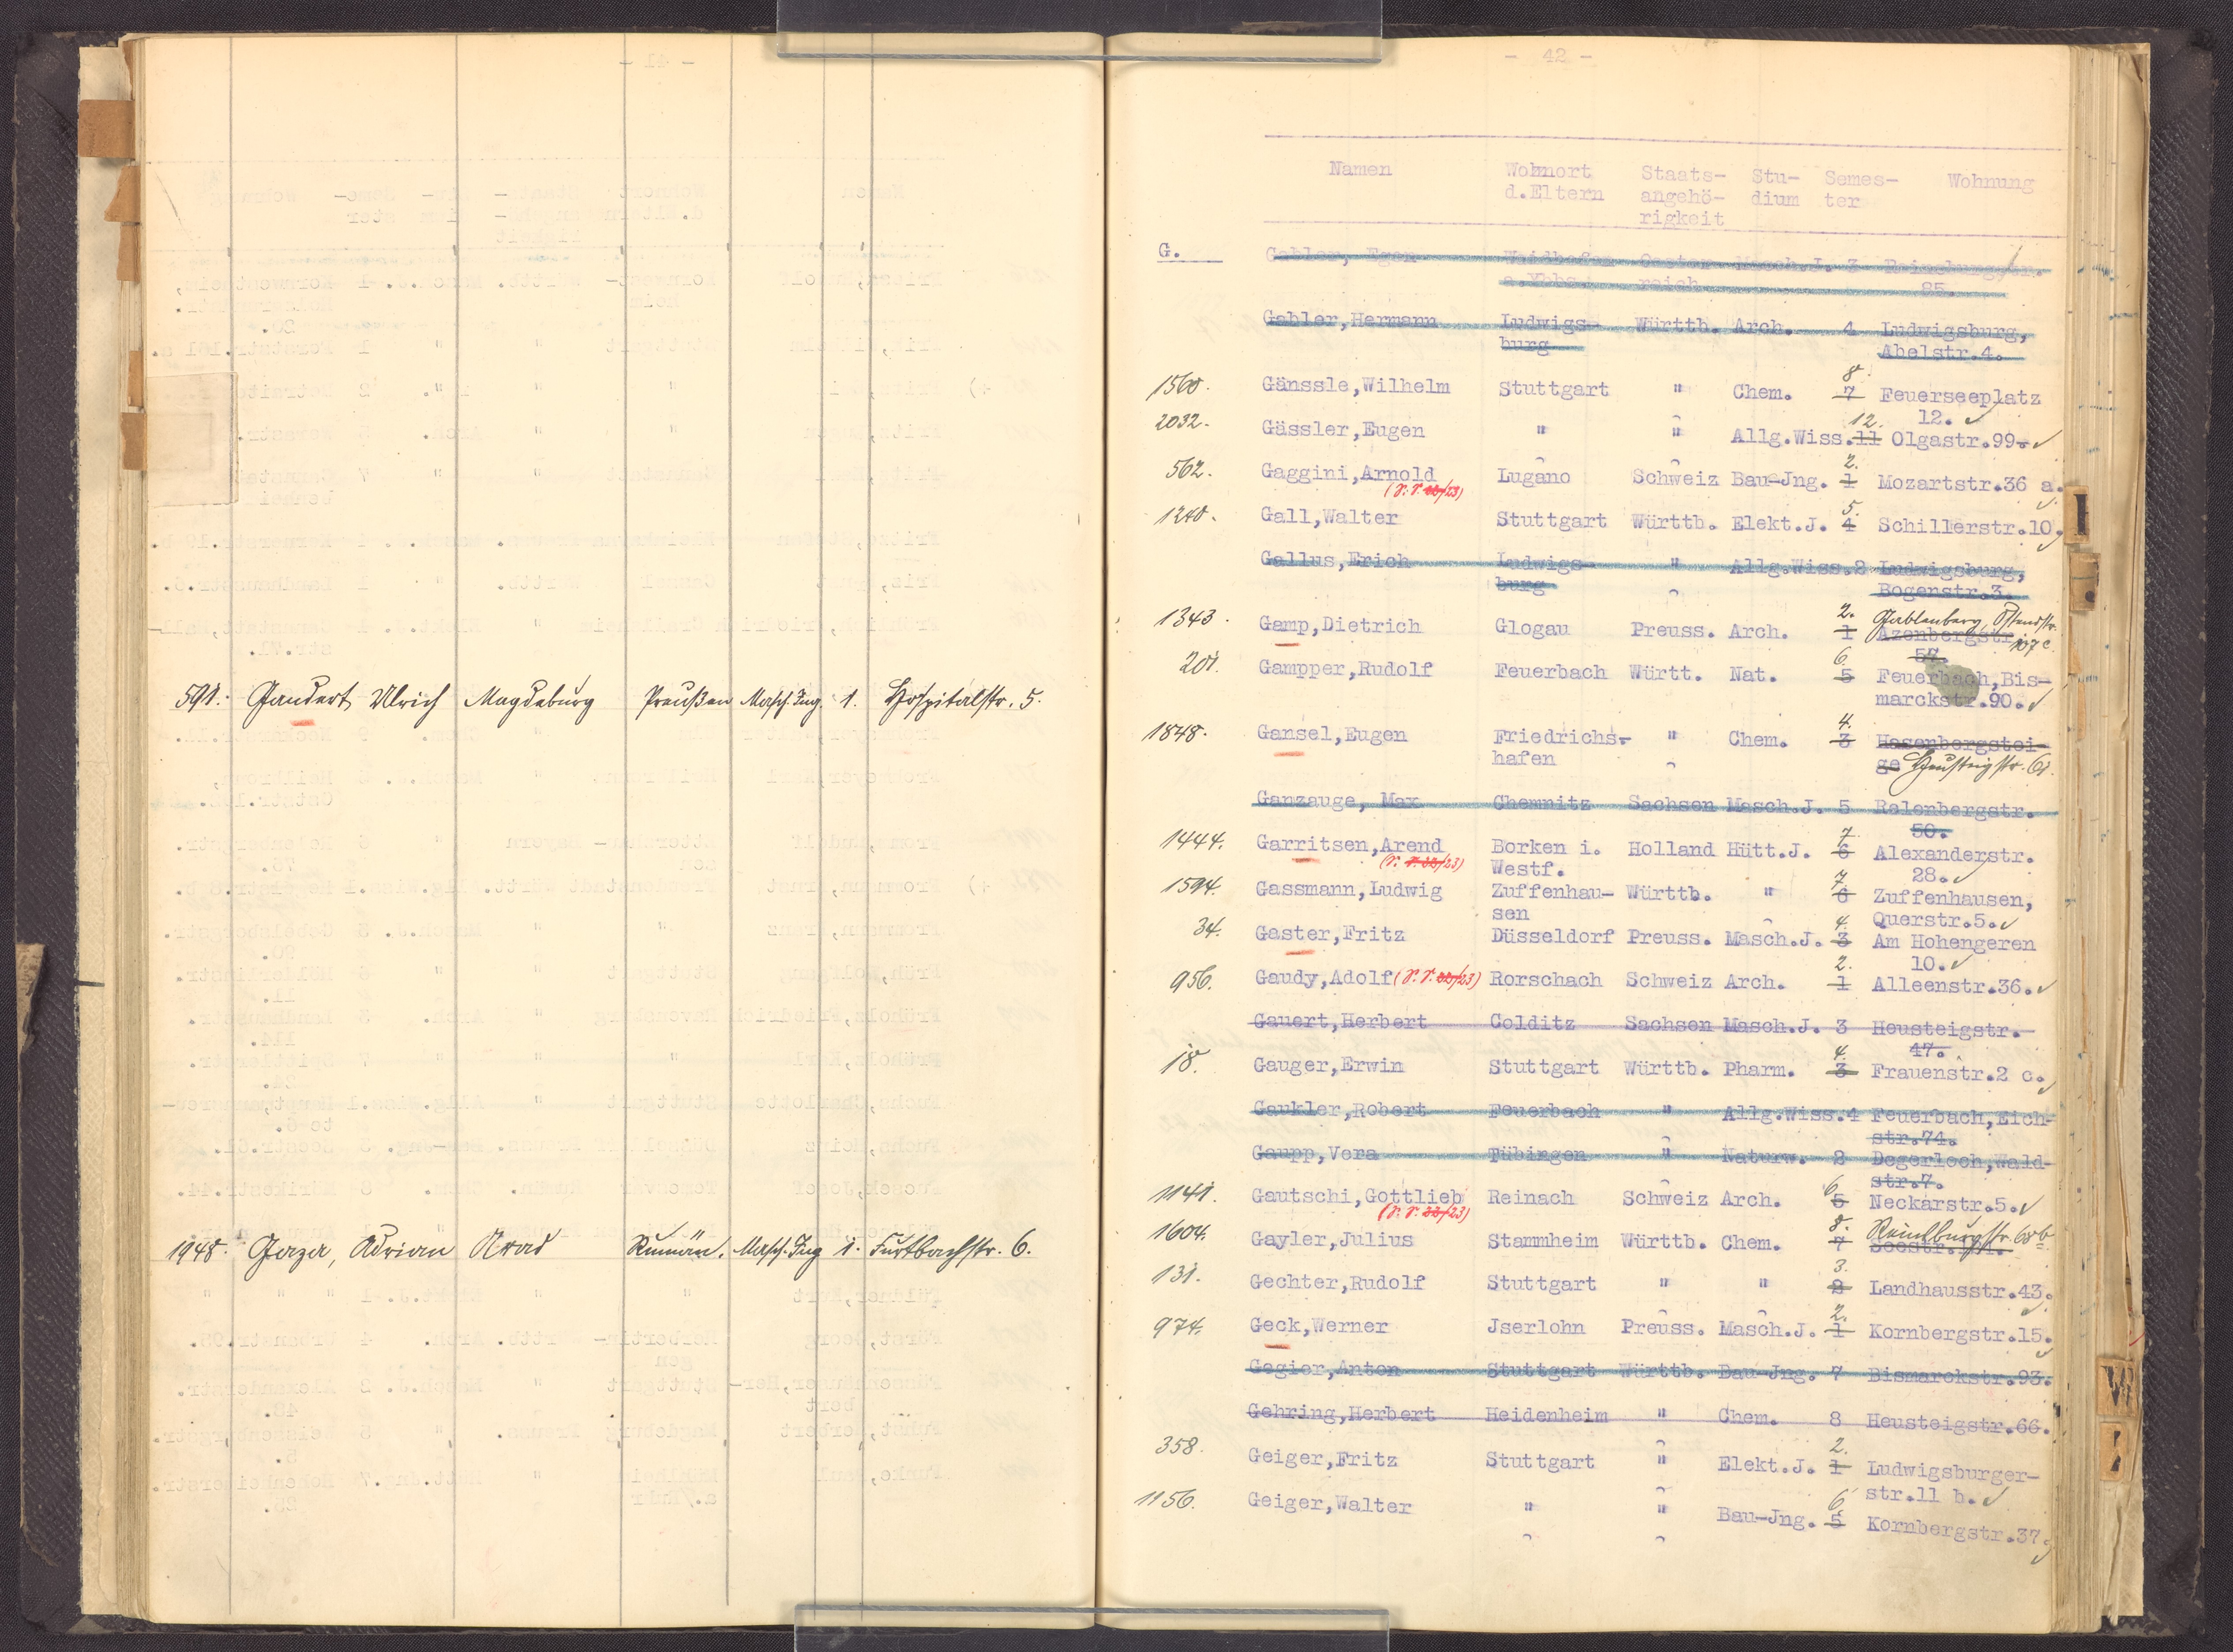 591. Gandert Ulrich Magdeburg Preußen Masch.Ing. 1. Hospitalstr. 5.
1948. Gaza, Adrian Arad Rumän. Masch.Ing 1. Furtbachstr. 6.
- 42 -
Namen Wohnort Staats- Stu- Semes- Wohnung
d.Eltern angehö- dium ter
rigkeit
G. Gabler, Egon Waidhofen Oester- Masch.J. 3
a.Ybbs reich 85.
Gabler,Hermann Ludwigs- Württb. Arch. 4 Ludwigsburg,
burg Abelstr.4.
8.
1560. Gänssle,Wilhelm Stuttgart " Chem. 7 Feuerseeplatz
12. 12.
2032. Gässler,Eugen " " Allg.Wiss.11 Olgastr.99.
2.
562. Gaggini,Arnold Lugano Schweiz Bau-Jng. 1 Mozartstr.36 a.
(V.V. 22/23)
5.
1240. Gall,Walter Stuttgart Württb. Elekt.J. 4 Schillerstr.10.
Gallus,Erich Ludwigs- " Allg.Wiss.2 Ludwigsburg,
burg Bogenstr.3.
2. Gablenberg, Ostendstr.
1343. Gamp,Dietrich Glogau Preuss. Arch. 1 Azenbergstr. 107c.
6. 57.
201. Gampper,Rudolf Feuerbach Württ. Nat. 5 Feuerbach,Bis-
marckstr.90.
4.
1848. Gansel,Eugen Friedrichs- " Chem. 3 Hasenbergstei-
hafen ge Heusteigstr. 61.
Ganzauge, Max Chemnitz Sachsen Masch.J. 5 Relenbergstr.
7. 50.
1444. Garritsen,Arend Borken i. Holland Hütt.J. 6 Alexanderstr.
(V. V. 22/23) Westf. 28.
7.
1594. Gassmann,Ludwig Zuffenhau- Württb. " 6 Zuffenhausen,
sen Querstr.5.
4.
34. Gaster,Fritz Düsseldorf Preuss. Masch.J. 3 Am Hohengeren
2. 10.
956. Gaudy,Adolf (V.V. 22/23) Rorschach Schweiz Arch. 1 Alleenstr.36.
Gauert,Herbert Colditz Sachsen Masch.J. 3 Heusteigstr.
4. 47.
18. Gauger,Erwin Stuttgart Württb. Pharm. 3 Frauenstr.2 c.
Gaukler,Robert Feuerbach " Allg.Wiss.4 Feuerbach,Eich-
str.74.
Gaupp,Vera Tübingen " Naturw. 2 Degerloch,Wald-
str.7.
6.
1141. Gautschi,Gottlieb Reinach Schweiz Arch. 5 Neckarstr.5.
(V.V. 22/23)
8.
1604. Gayler,Julius Stammheim Württb. Chem. 7
3.
131. Gechter,Rudolf Stuttgart " " 2 Landhausstr.43.
2.
974. Geck,Werner Jserlohn Preuss. Masch.J. 1 Kornbergstr.15.
Gegier,Anton Stuttgart Württb. Bau-Jng. 7 Bismarckstr.93.
Gehring,Herbert Heidenheim " Chem. 8 Heusteigstr.66.
2.
358. Geiger,Fritz Stuttgart " Elekt.J. 1 Ludwigsburger-
str.11 b.
6.
1156. Geiger,Walter " " Bau-Jng. 5 Kornbergstr.37.